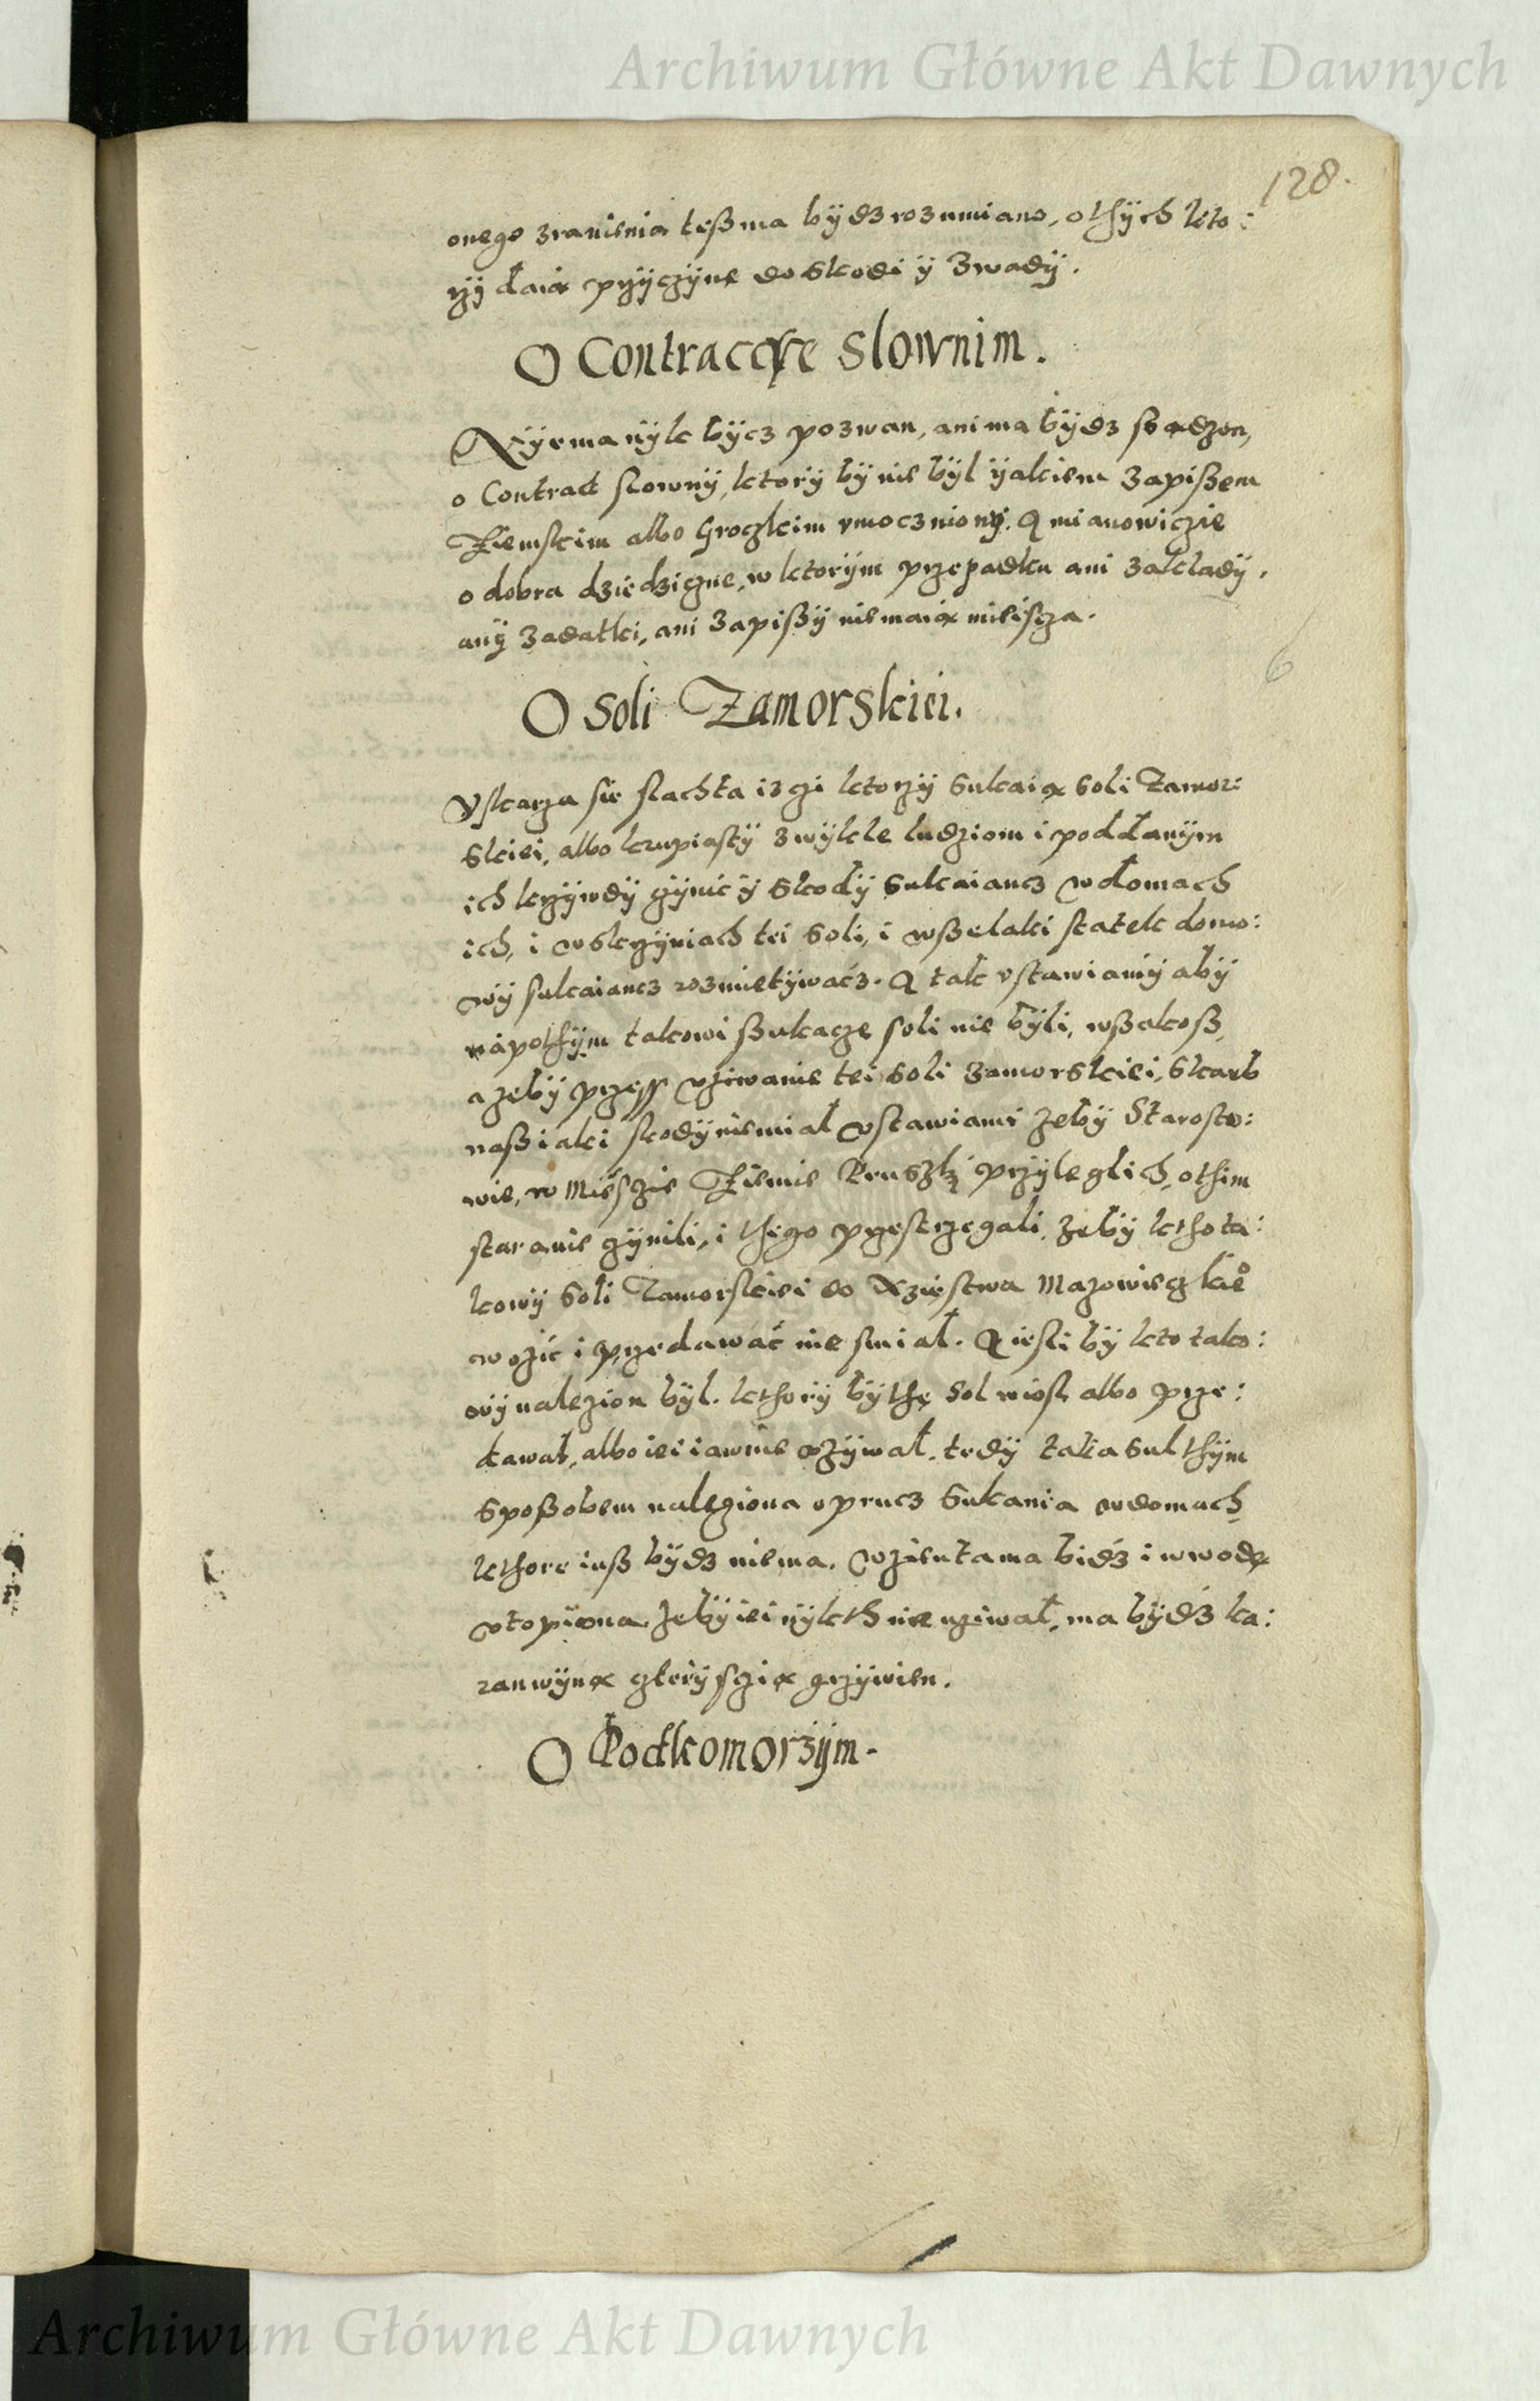 Archiwum Główne Akt Dawnych
128.
onego zranienia tesz ma bydz rozumiano, o thych kto:
rzy daią przyczyne do skodi y zwady.
O Contracċie Slownim.
Nyema nyk bycz pozwan, ani ma bydz sądzon,
o Contract slowny, ktory by nie byl yakiem zapiszem
Ziemskim albo Groczkim vmoczniony. A mianowiczie
o dobra dziedziczne, w ktorym przepadku ani zakłady,
any zadatki, ani zapiszy niemaią mieisza.
6
O Soli Zamorskiei.
Vskarza sie slachta iz czi ktorzy sukaią soli Zamor:
skiei, albo krupiasty zwykle ludziom i poddanym
ich krzywdy czynić y skody sukaiancz w domach
ich, i w skrzyniach tei soli, i wszelaki statek domo:
wy sukaiancz rozmietywacz. A tak vstawiamy aby
napothym takowi szukacze soli nie byli, wszakosz,
a zeby przess vziwanie tei soli zamorskiei, skarb
nasz iaki skody niemiał vstawiami zeby Starosto:
wie, w miesczie Ziemie Pruszky przyleglich, o thim
staranie czynili, i thego przestrzegali, zeby ktho ta:
kowy soli Zamorskiei do Xzięstwa Mazowieczkieo
wozić i przedawać nie smiał. A iesli by kto tako:
wy nalezion byl, kthory by thę sol niosł albo prze:
dawał, albo iei iawnie vzywał, tedy taka sul thym
sposzobem naleziona oprucz sukania w domach,
kthore iusz bydz niema, wzienta ma bidz i w wodę
vtopiona, zeby iei nykth nie uziwał, ma bydz ka:
ran wyną czterysczią grzywien.
O Podkomorzym.
Archiwum Główne Akt Dawnych